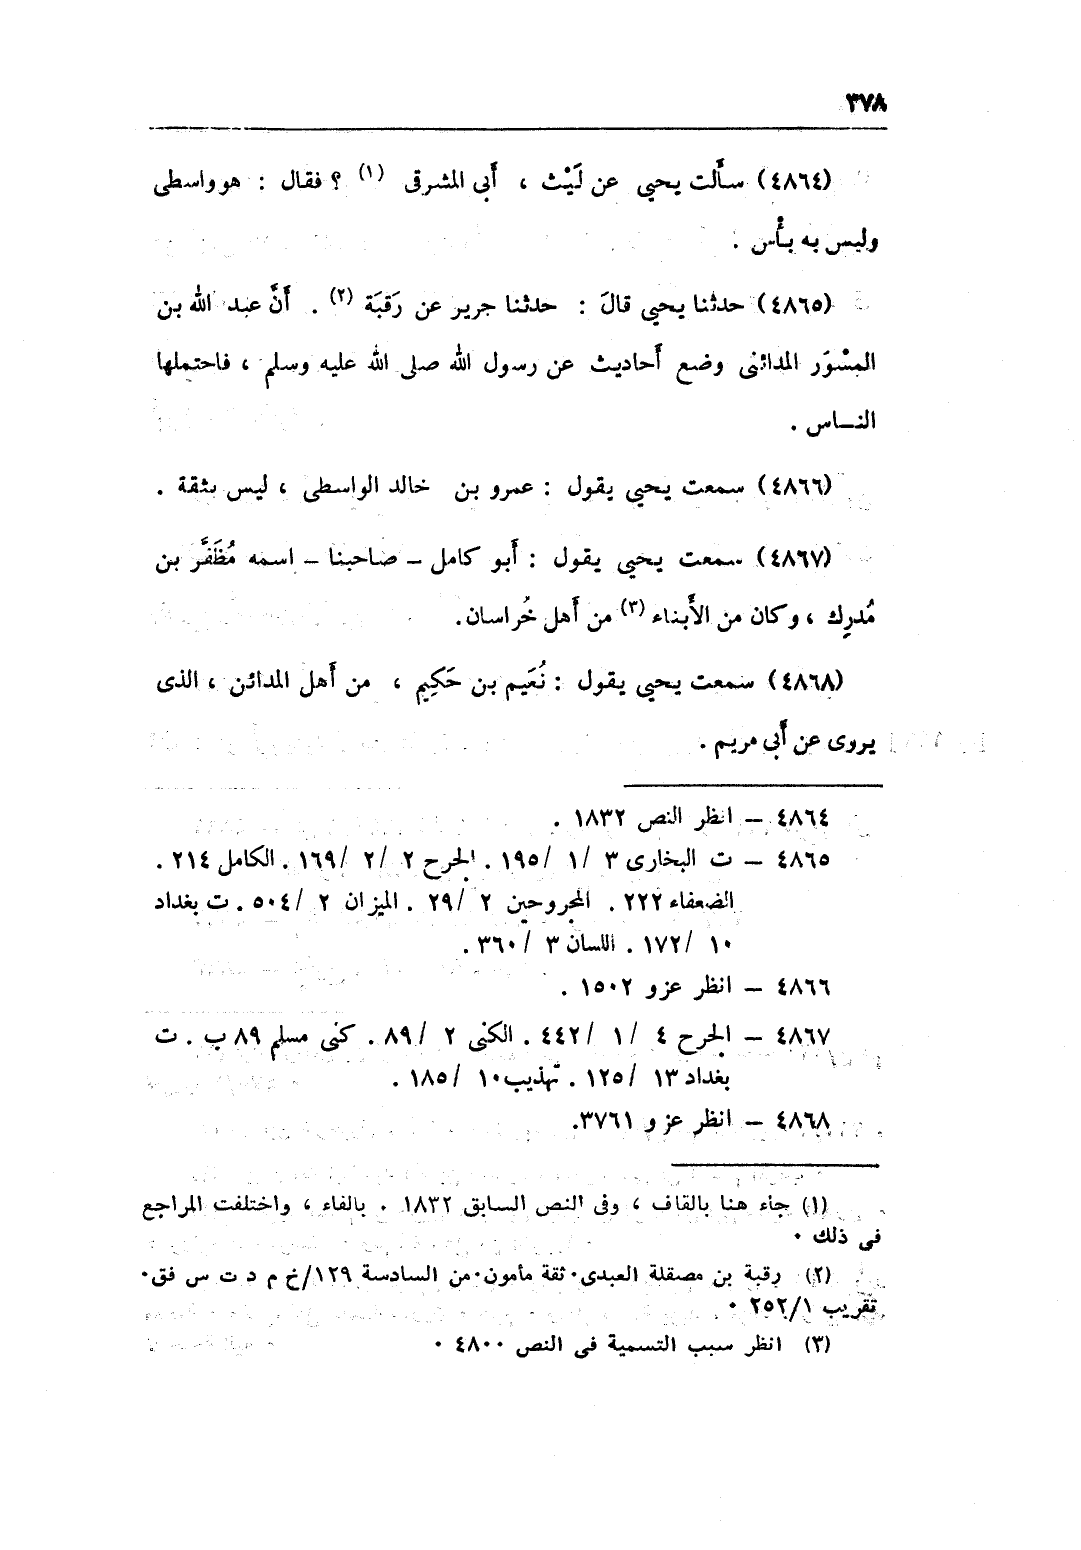 ٣٧٨
(٤٨٦٤) سأَلت يحيى عن لَيْث ، أَبى المشرقى (١) ؟ فقال : هو واسطى
وليس به بأْس .
(٤٨٦٥) حدثنا يحيى قالَ : حدثنا جرير عن رَقبَة (٢) . أَنَّ عبد الله بن
المِسْوَر المدائنى وضع أَحاديث عن رسول الله صلى الله عليه وسلم ، فاحتملها
النــاس .
(٤٨٦٦) سمعت يحيى يقول : عمرو بن خالد الواسطى ، ليس بثقة .
(٤٨٦٧) سمعت يحيى يقول : أَبو كامل ــ صاحبنا ــ اسمه مُظَفَّر بن
مُدرِك ، وكان من الأَبناء (٣) من أَهل خُراسان.
(٤٨٦٨) سمعت يحيى يقول : نُعَيم بن حَكِيم ، من أَهل المدائن ، الذى
يروى عن أَبى مريم .
٤٨٦٤ ــ انظر النص ١٨٣٢ .
٤٨٦٥ ــ ت البخارى ٣ /١ /١٩٥ . الجرح ٢ /٢ /١٦٩ . الكامل ٢١٤ .
الضعفاء ٢٢٢ . المجروحين ٢ /٢٩ . الميزان ٢ /٥٠٤ . ت بغداد
١٠ /١٧٢ . اللسان ٣ /٣٦٠ .
٤٨٦٦ ــ انظر عزو ١٥٠٢ .
٤٨٦٧ ــ الجرح ٤ /١ /٤٤٢ . الكنى ٢ /٨٩ . كنى مسلم ٨٩ ب . ت
بغداد ١٣ /١٢٥ . تهذيب ١٠ /١٨٥ .
٤٨٦٨ ــ انظر عزو ٣٧٦١.
(١) جاء هنا بالقاف ، وفى النص السابق ١٨٣٢ . بالفاء ، واختلفت المراجع
فى ذلك .
(٢) رقبة بن مصقلة العبدى. ثقة مأمون. من السادسة ١٢٩/خ م د ت س فق.
تقريب ٢٥٢/١ .
(٣) انظر سبب التسمية فى النص ٤٨٠٠ .